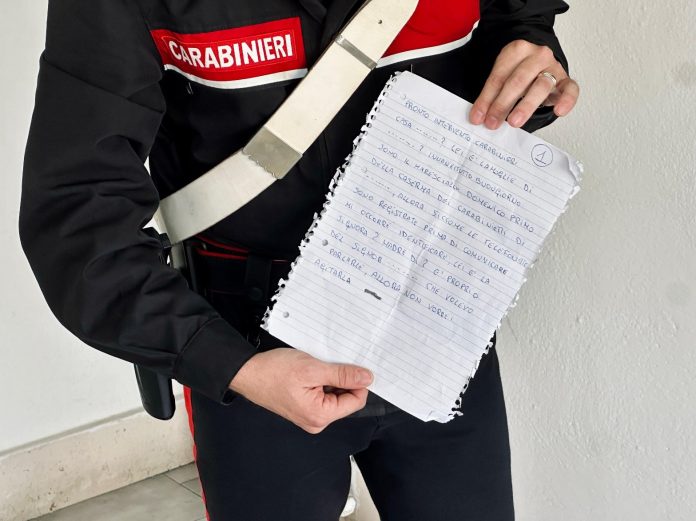 CARABINIERI
1
PRONTO INTERVENTO CARABINIERI
CASA ........? LEI È LA MOGLIE DI
........? INNANZITUTTO BUONGIORNO
SONO IL MARESCIALLO DOMENICO PRIMO
DELLA CASERMA DEI CARABINIERI DI
?......, ALLORA SICCOME LE TELEFONATE
SONO REGISTRATE PRIMA DI COMUNICARE
MI OCCORRE IDENTIFICARE, LEI È LA
SIGNORA? MADRE DI? E' PROPRIO
DEL SIGNOR ....... CHE VOLEVO
PARLARLE, ALLORA NON VORREI
AGITARLA